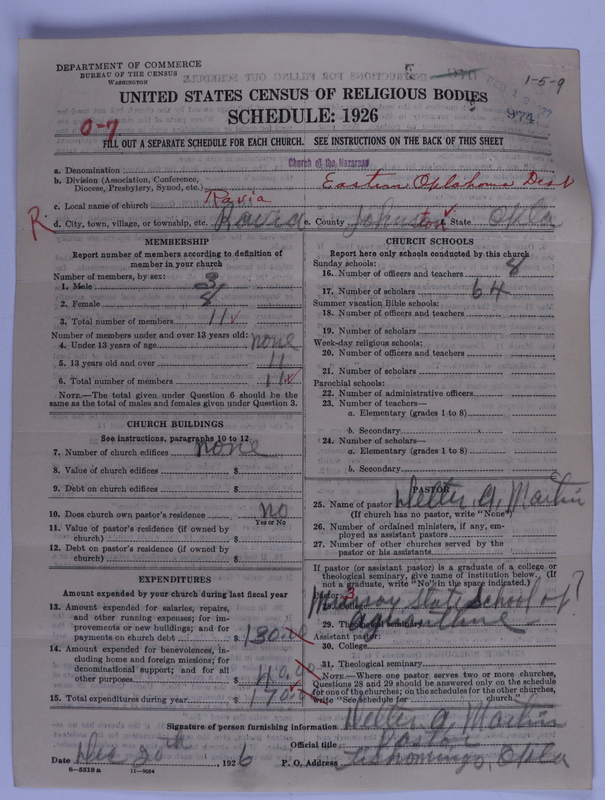 DEPARTMENT OF COMMERCE
BUREAU OF THE CENSUS
WASHINGTON
1-5-9
UNITED STATES CENSUS OF RELIGIOUS BODIES
SCHEDULE: 1926
974
0-7
FILL OUT A SEPARATE SCHEDULE FOR EACH CHURCH. SEE INSTRUCTIONS ON THE BACK OF THIS SHEET
a. Denomination Church of the Nazarene
b. Division (Association, Conference, Diocese, Presbytery, Synod, etc.) Eastern Oplahoma Dist
c. Local name of church Ravia
R. d. City, town, village, or township, etc. Ravia e. County Johnston State Opla
MEMBERSHIP
Report number of members according to definition of member in your church
Number of members, by sex:
1. Male 3
2. Female 8
3. Total number of members 11
Number of members under and over 13 years old:
4. Under 13 years of age none
5. 13 years old and over 11
6. Total number of members 11
NOTE.—The total given under Question 6 should be the same as the total of males and females given under Question 3.
CHURCH BUILDINGS
See instructions, paragraphs 10 to 12
7. Number of church edifices none
8. Value of church edifices $
9. Debt on church edifices $
10. Does church own pastor's residence no
Yes or No
11. Value of pastor's residence (if owned by church) $
12. Debt on pastor's residence (if owned by church) $
EXPENDITURES
Amount expended by your church during last fiscal year
13. Amount expended for salaries, repairs, and other running expenses; for improvements or new buildings; and for payments on church debt $ 130.00
14. Amount expended for benevolences, including home and foreign missions; for denominational support; and for all other purposes $ 40.00
15. Total expenditures during year $ 170.00
CHURCH SCHOOLS
Report here only schools conducted by this church
Sunday schools:
16. Number of officers and teachers 8
17. Number of scholars 64
Summer vacation Bible schools:
18. Number of officers and teachers
19. Number of scholars
Week-day religious schools:
20. Number of officers and teachers
21. Number of scholars
Parochial schools:
22. Number of administrative officers
23. Number of teachers—
a. Elementary (grades 1 to 8)
b. Secondary
24. Number of scholars—
a. Elementary (grades 1 to 8)
b. Secondary
PASTOR
25. Name of pastor Martin
(If church has no pastor, write "None")
26. Number of ordained ministers, if any, employed as assistant pastors
27. Number of other churches served by the pastor or his assistants
If pastor (or assistant pastor) is a graduate of a college or theological seminary, give name of institution below. (If not a graduate, write "No" in the space indicated.)
Pastor: 3
28. College Murray State School of
29. Theological seminary
Assistant pastor:
30. College
31. Theological seminary
NOTE.—Where one pastor serves two or more churches, Questions 28 and 29 should be answered only on the schedule for one of the churches; on the schedules for the other churches, write "See Schedule for church."
Signature of person furnishing information Martin
Official title Pastor
Date Dec 20th, 1926 P. O. Address Tishomingo, Opla
8-5518a 11-9054